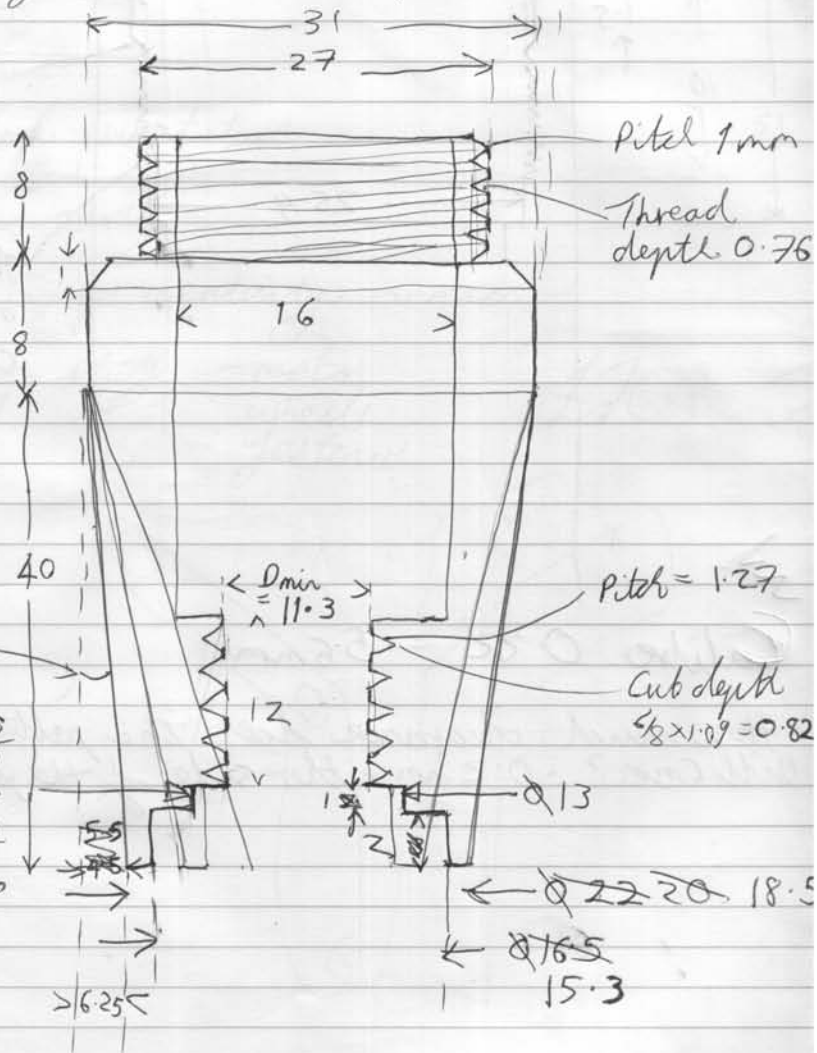 31
27
Pitch 1mm
8
Thread
depth 0.76
8
16
40
Dmin
= 11.3
Pitch = 1.27
12
Cut depth
6/8 x 1.09 = 0.82
1
Ø13
2
5.5
4.5
Ø 22 20 18.5
Ø16.5
15.3
>6.25<